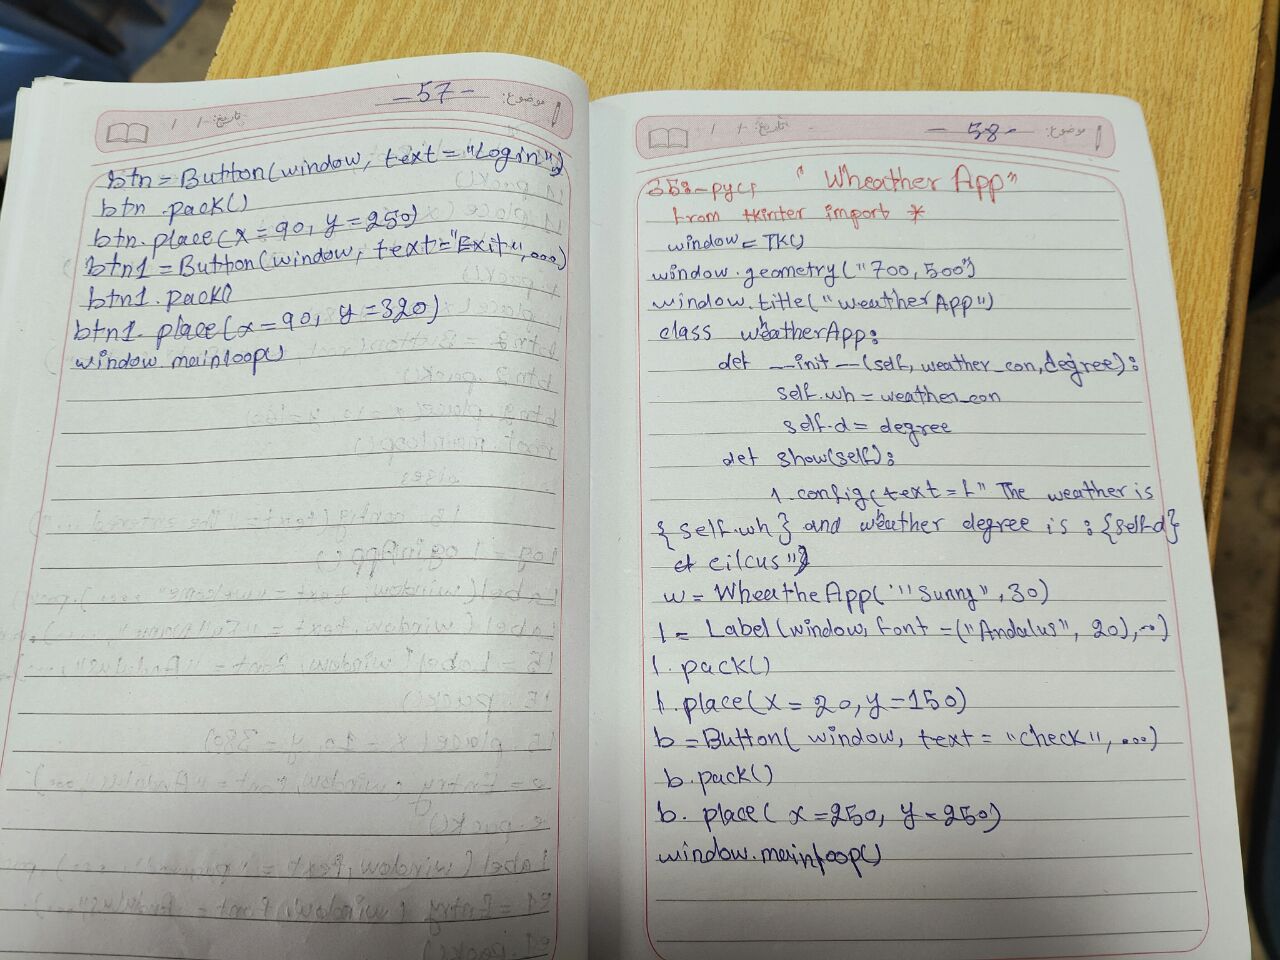 موضوع:
- 57 -
تاریخ: / /
btn = Button(window, text = "Login")
btn .pack()
btn. place (x = 90, y = 250)
btn1 = Button(window, text = "Exit", ...)
btn1 . pack()
btn1. place (x = 90, y = 320)
window mainloop()
موضوع:
- 58 -
تاریخ: / /
358-pycs " Wheather App"
from tkinter import *
window = TK()
window. geometry ("700, 500")
window. title( "weatherApp")
class weatherApp:
def __init__(self, weather_con, degree):
self. wh = weather_con
self. d = degree
def show(self):
l. config ( text = f" The weather is
{ self. wh } and weather degree is : {self.d}
cilcus")
w = WheatheApp( "Sunny", 30)
l = Label (window, font = ("Andalus", 20), ..)
l. pack()
l. place (x = 20, y = 150)
b = Button( window, text = "check", ...)
b. pack()
b. place ( x = 250, y = 250)
window. mainloop()